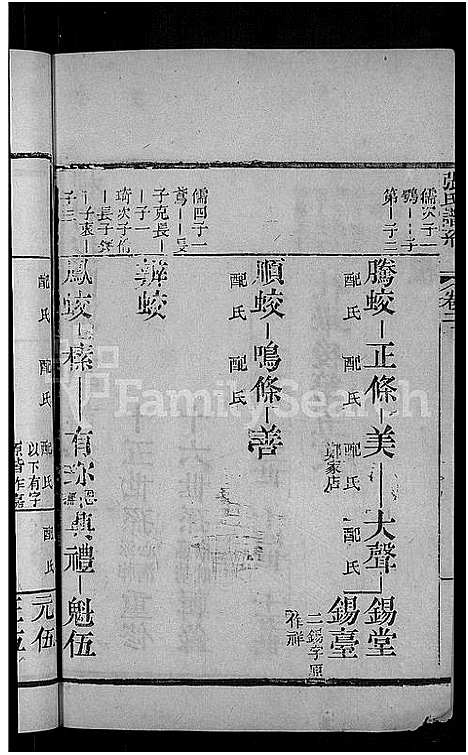 張氏譜系 卷二
儒次子一
鶚一子
第一子二
騰蛟 正條 美 大聲 錫堂
配氏 配氏 配氏 配氏
鄭家店
錫臺
二錫字原作祥
順蛟 鳴條 善
配氏 配氏
儒四子一
鳶一長
子克長一
子一
辦蛟
琦次子倫
長子錚
一子衷
子三
鳳蛟 榛 有 典禮 魁伍
配氏 配氏 配氏 配氏
以下有字
原皆作嘉
元伍
三伍
FamilySearch